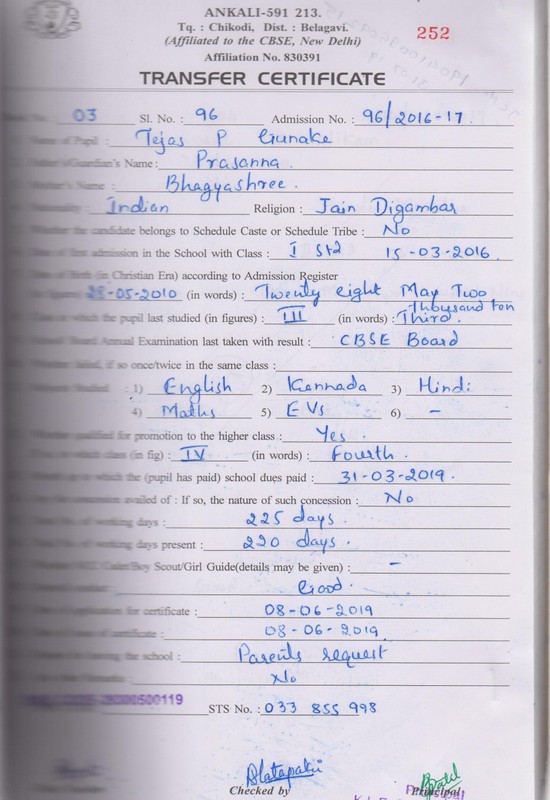 ANKALI-591 213.
Tq. : Chikodi, Dist. : Belagavi.
(Affiliated to the CBSE, New Delhi)
252
Affiliation No. 830391
TRANSFER CERTIFICATE
03 Sl. No. : 96 Admission No. : 96/2016-17
Name of Pupil : Tejas P Gunake
Guardian's Name : Prasanna
Mother's Name : Bhagyashree.
Indian Religion : Jain Digambar
Whether the candidate belongs to Schedule Caste or Schedule Tribe : No
Date of first admission in the School with Class : I Std 15-03-2016
(in Christian Era) according to Admission Register
28-05-2010 (in words) : Twenty eight May Two
Thousand ten
in which the pupil last studied (in figures) : III (in words) : Third.
Board Annual Examination last taken with result : CBSE Board
Whether failed, if so once/twice in the same class :
Studied : 1) English 2) Kannada 3) Hindi
4) Maths 5) EVs 6) -
Whether qualified for promotion to the higher class : Yes.
which class (in fig) : IV (in words) : Fourth.
which the (pupil has paid) school dues paid : 31-03-2019.
availed of : If so, the nature of such concession : No
of working days : 225 days.
of working days present : 220 days.
Boy Scout/Girl Guide(details may be given) : -
Good.
for certificate : 08-06-2019
of certificate : 08-06-2019
leaving the school : Parents request
No
STS No. : 033 855 998
Checked by
Principal